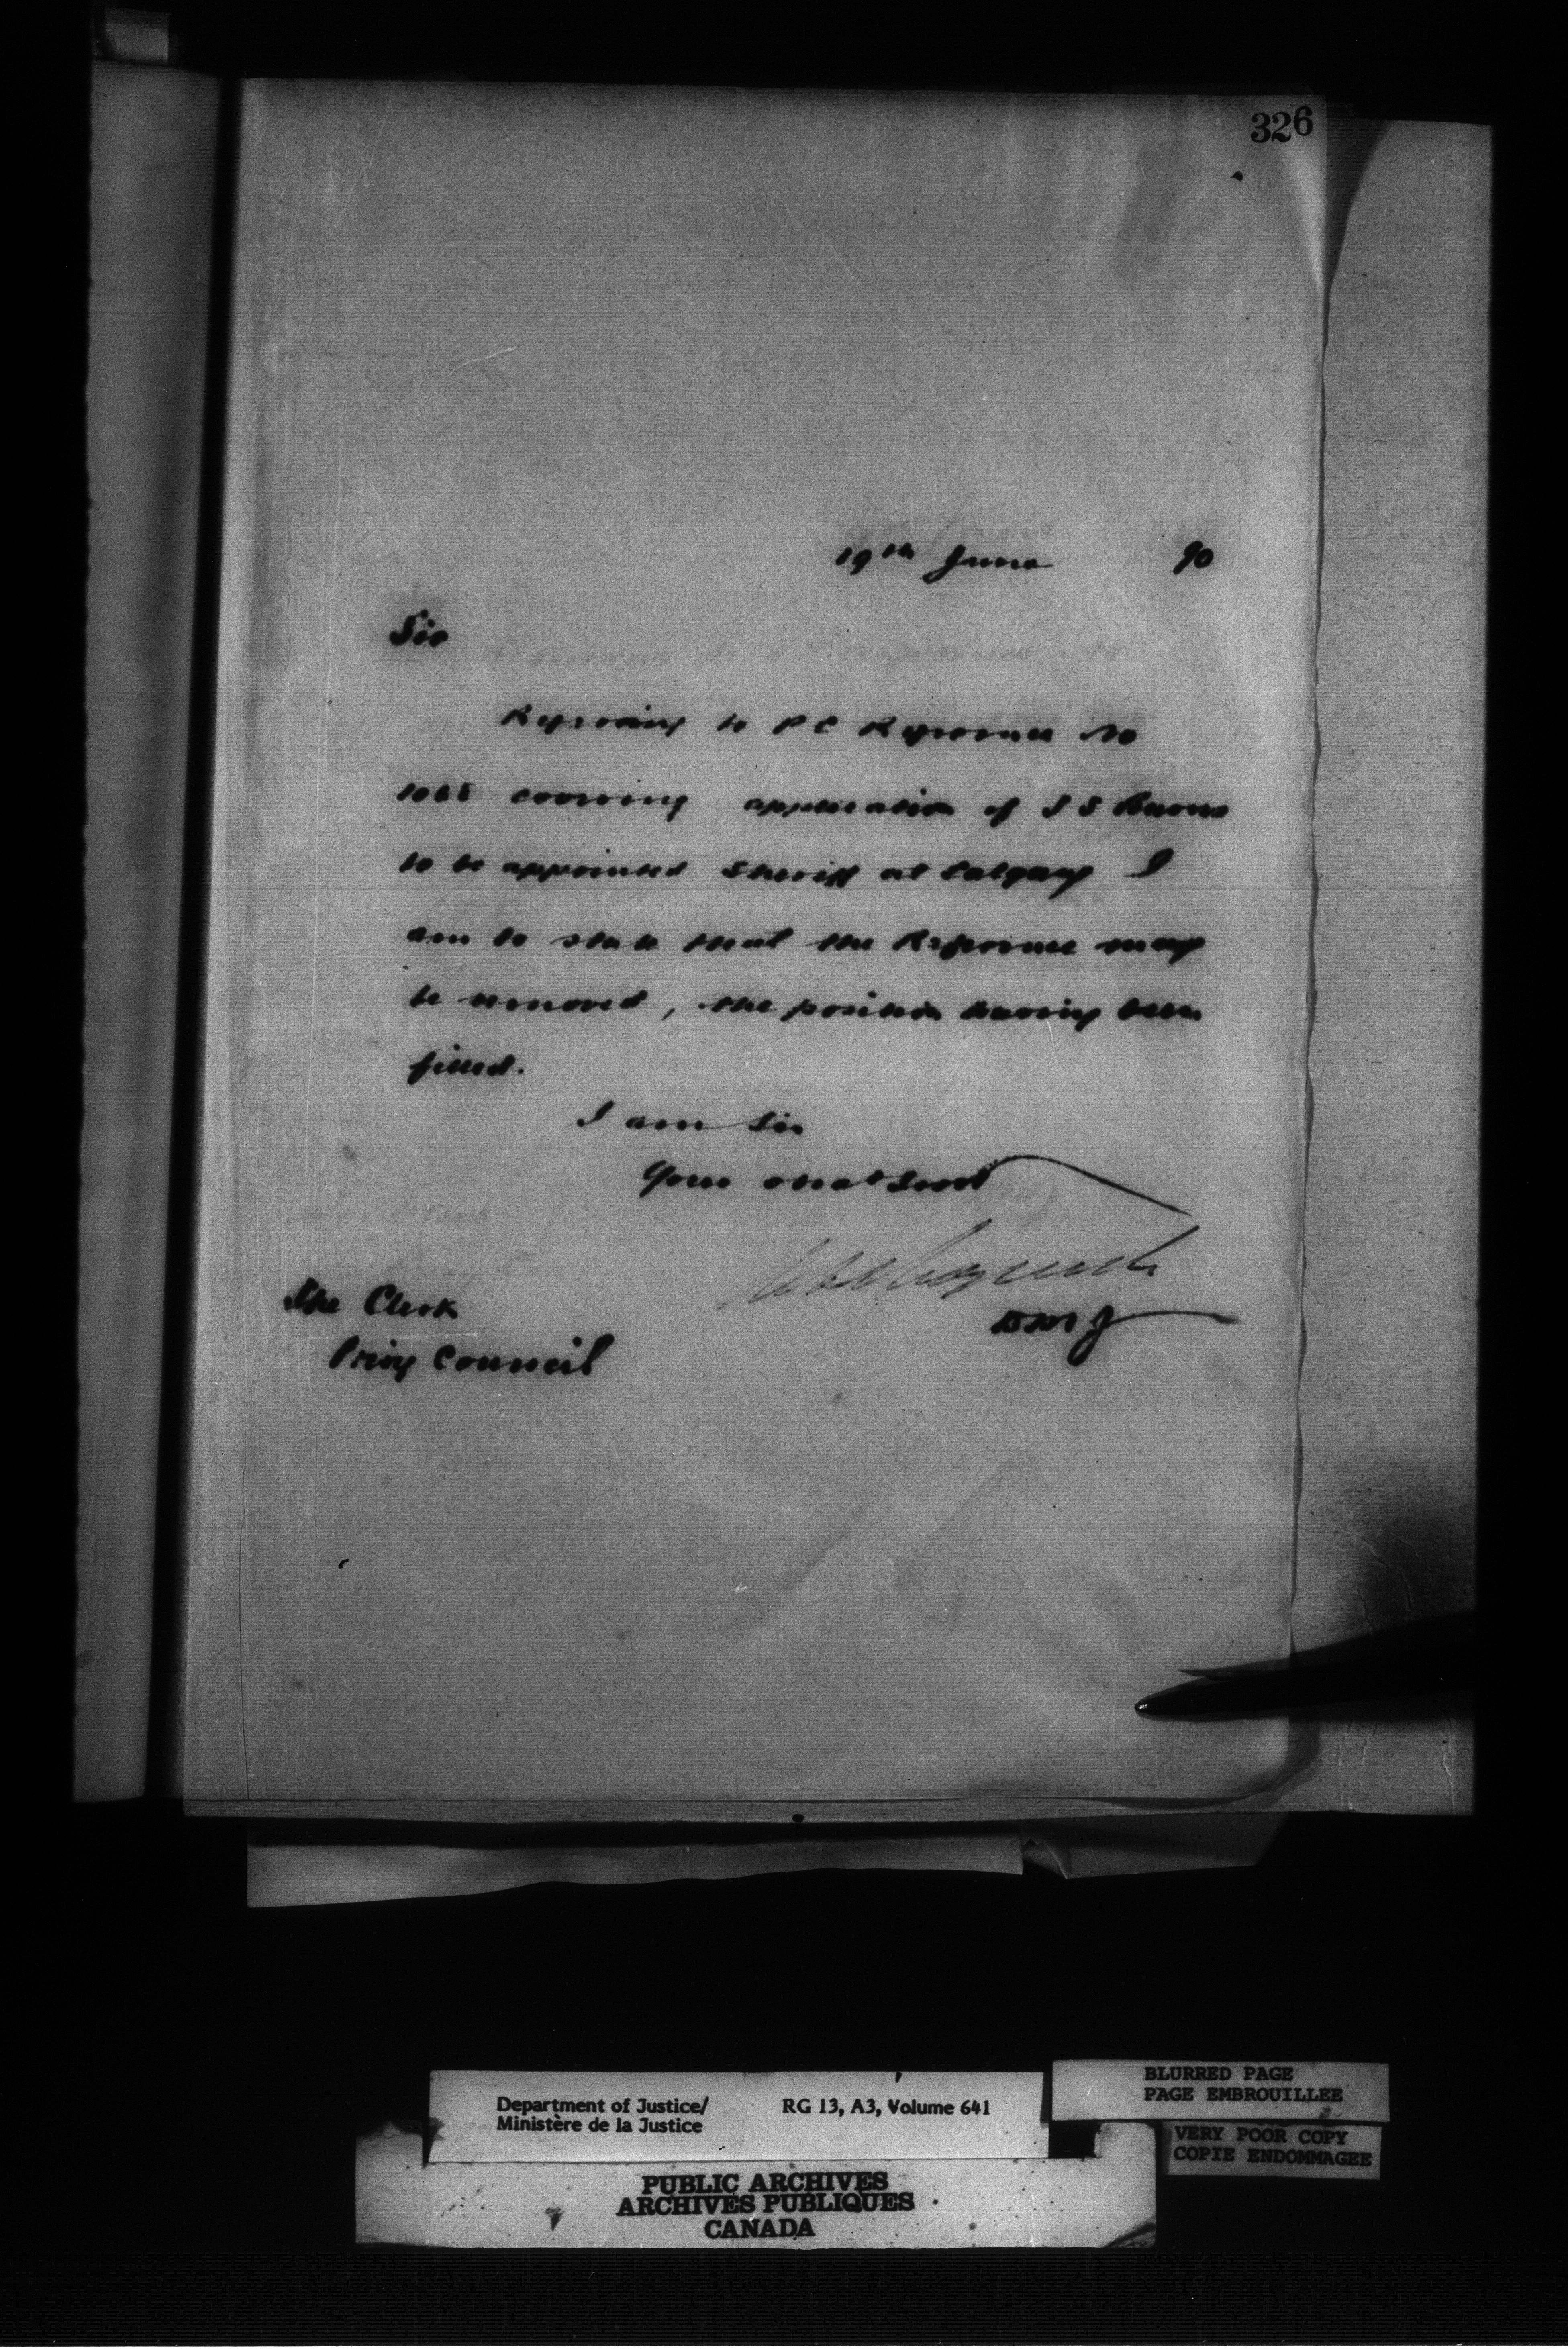 326
19th June 90
Sir
Referring to P C Reference No
covering application of
to be appointed Sheriff at Calgary I
am to state that the Reference may
be removed, the position having been
filled.
I am Sir
Your obedt Servt
D M J
The Clerk
Privy Council
Department of Justice/ RG 13, A3, Volume 641
Ministère de la Justice
BLURRED PAGE
PAGE EMBROUILLEE
VERY POOR COPY
COPIE ENDOMMAGEE
PUBLIC ARCHIVES
ARCHIVES PUBLIQUES
CANADA